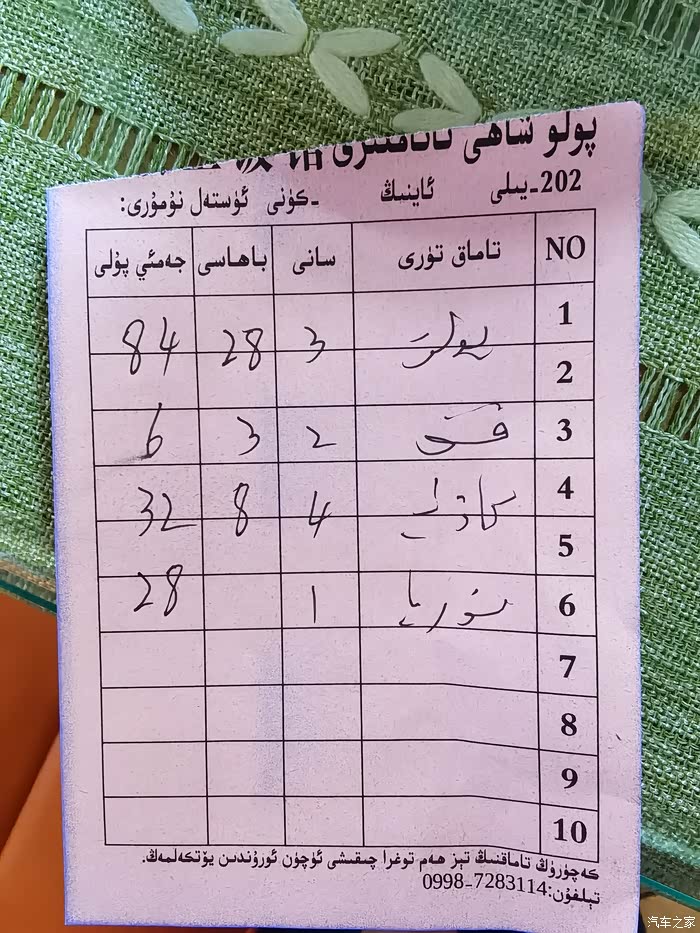 پولو شاھى تاماقلىرى
202-يىلى ئاينىڭ -كۈنى ئۈستەل نۇمۇرى:
NO تاماق تۈرى سانى باھاسى جەمئىي پۇلى
1 پولو 3 28 84
2
3 2 3 6
4 4 8 32
5
6 1 28
7
8
9
10
كەچۈرۈڭ تاماقنىڭ تېز ھەم توغرا چىقىشى ئۈچۈن ئورۇندىن يۆتكەلمەڭ.
تېلفۇن:7283114-0998
汽车之家